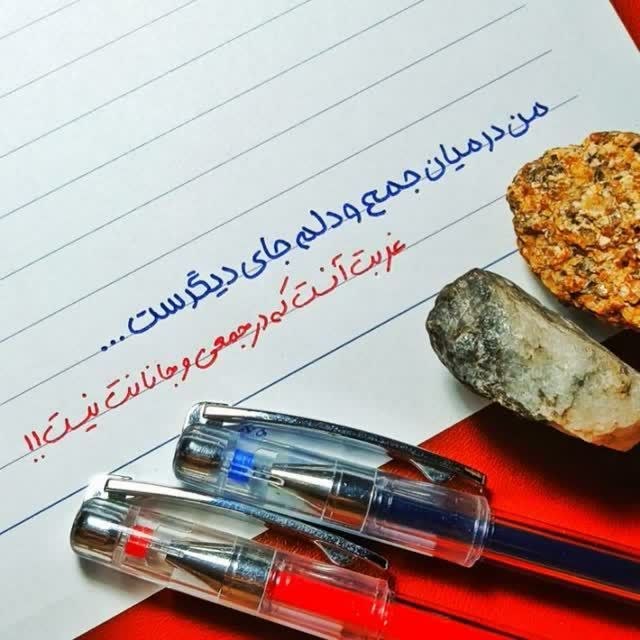 من در میان جمع و دلم جای دیگرست...
غربت آنست که در جمعی و جانانت نیست!!